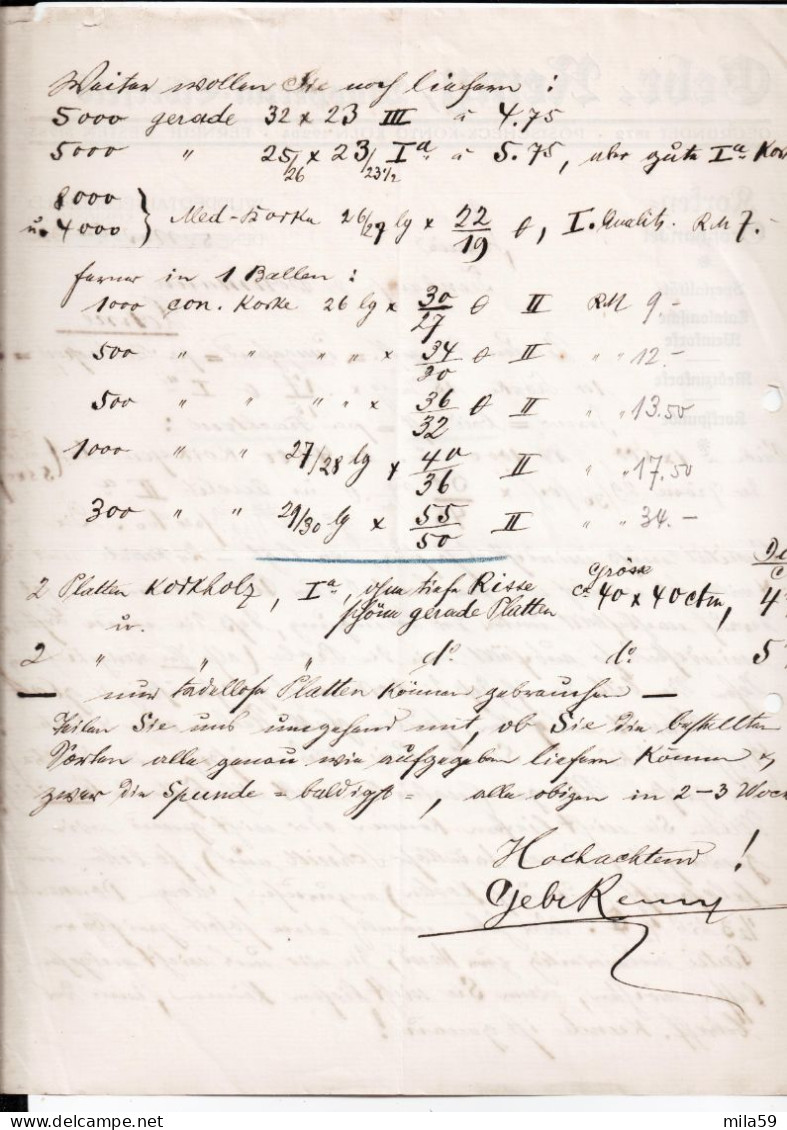 Weiter wollen Sie noch liefern :
5000 gerade 32 x 23 III à 4.75
5000 " 25/26 x 23/23½ Iª à 5.75, aber gute Iª Kor
8000
u. 4000 } Med-Korke 26/27 lg x 22/19 θ, I. Qualit. RM 7.-
ferner in 1 Ballen :
1000 con. Korke 26 lg x 30/27 θ II RM 9-
500 " " " " x 34/30 θ II " " 12.-
500 " " " " x 36/32 θ II " " 13.50
1000 " " 27/28 lg x 40/36 II " " 17.50
300 " " 29/30 lg x 55/50 II " " 34.-
2 Platten Korkholz, Iª, ohne tiefe Risse Grösse ca 40 x 40 ctm, 4
u. schöne gerade Platten
2 " " " do. do. 5
— nur tadellose Platten können gebrauchen —
Teilen Sie uns umgehend mit, ob Sie die bestellten
Sorten alle genau wie aufgegeben liefern können &
zwar die Spunde = baldigst =, alle obigen in 2-3 Woch
Hochachtend !
Gebr Remy
mila59